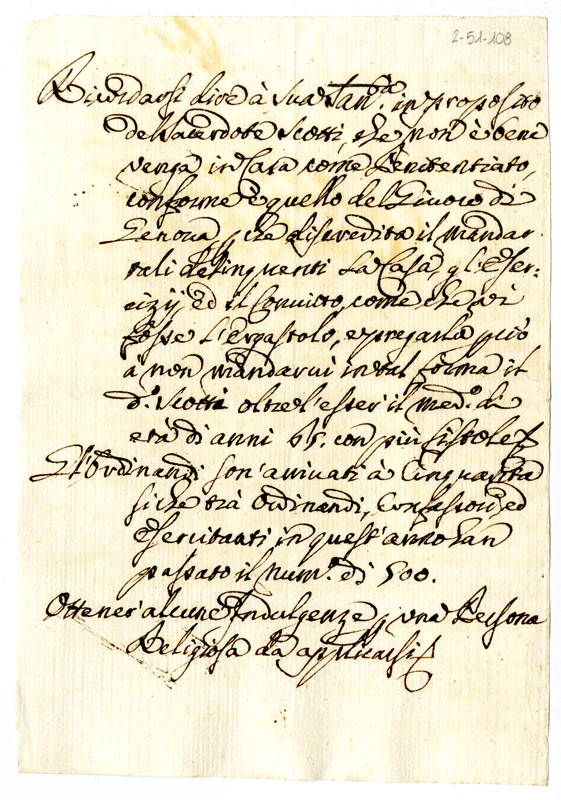 2-51-108
Ricordarsi dire à Sua San.tà in proposito
del Sacerdote Scotti, che non è bene
venga in Casa come Penitentiato,
conforme è quello del di
Genova, p che discredita il mandar
tali delinquenti la Casa, gl'Eser-
cizij ed il Convitto, come che vi
fosse l'Ergastolo, e pregarla p ciò
à non mandarvi in tal forma il
d.o Scotti oltre l'esser il med.o di
età di anni 65. con più fistole
Gl'Ordinandi son' arrivati à Cinquanta
siche trà Ordinandi, ed
esercitanti in quest'anno han
passato il num.o di 500.
Ottener' alcune Indulgenze p una Persona
Religiosa da applicarsi